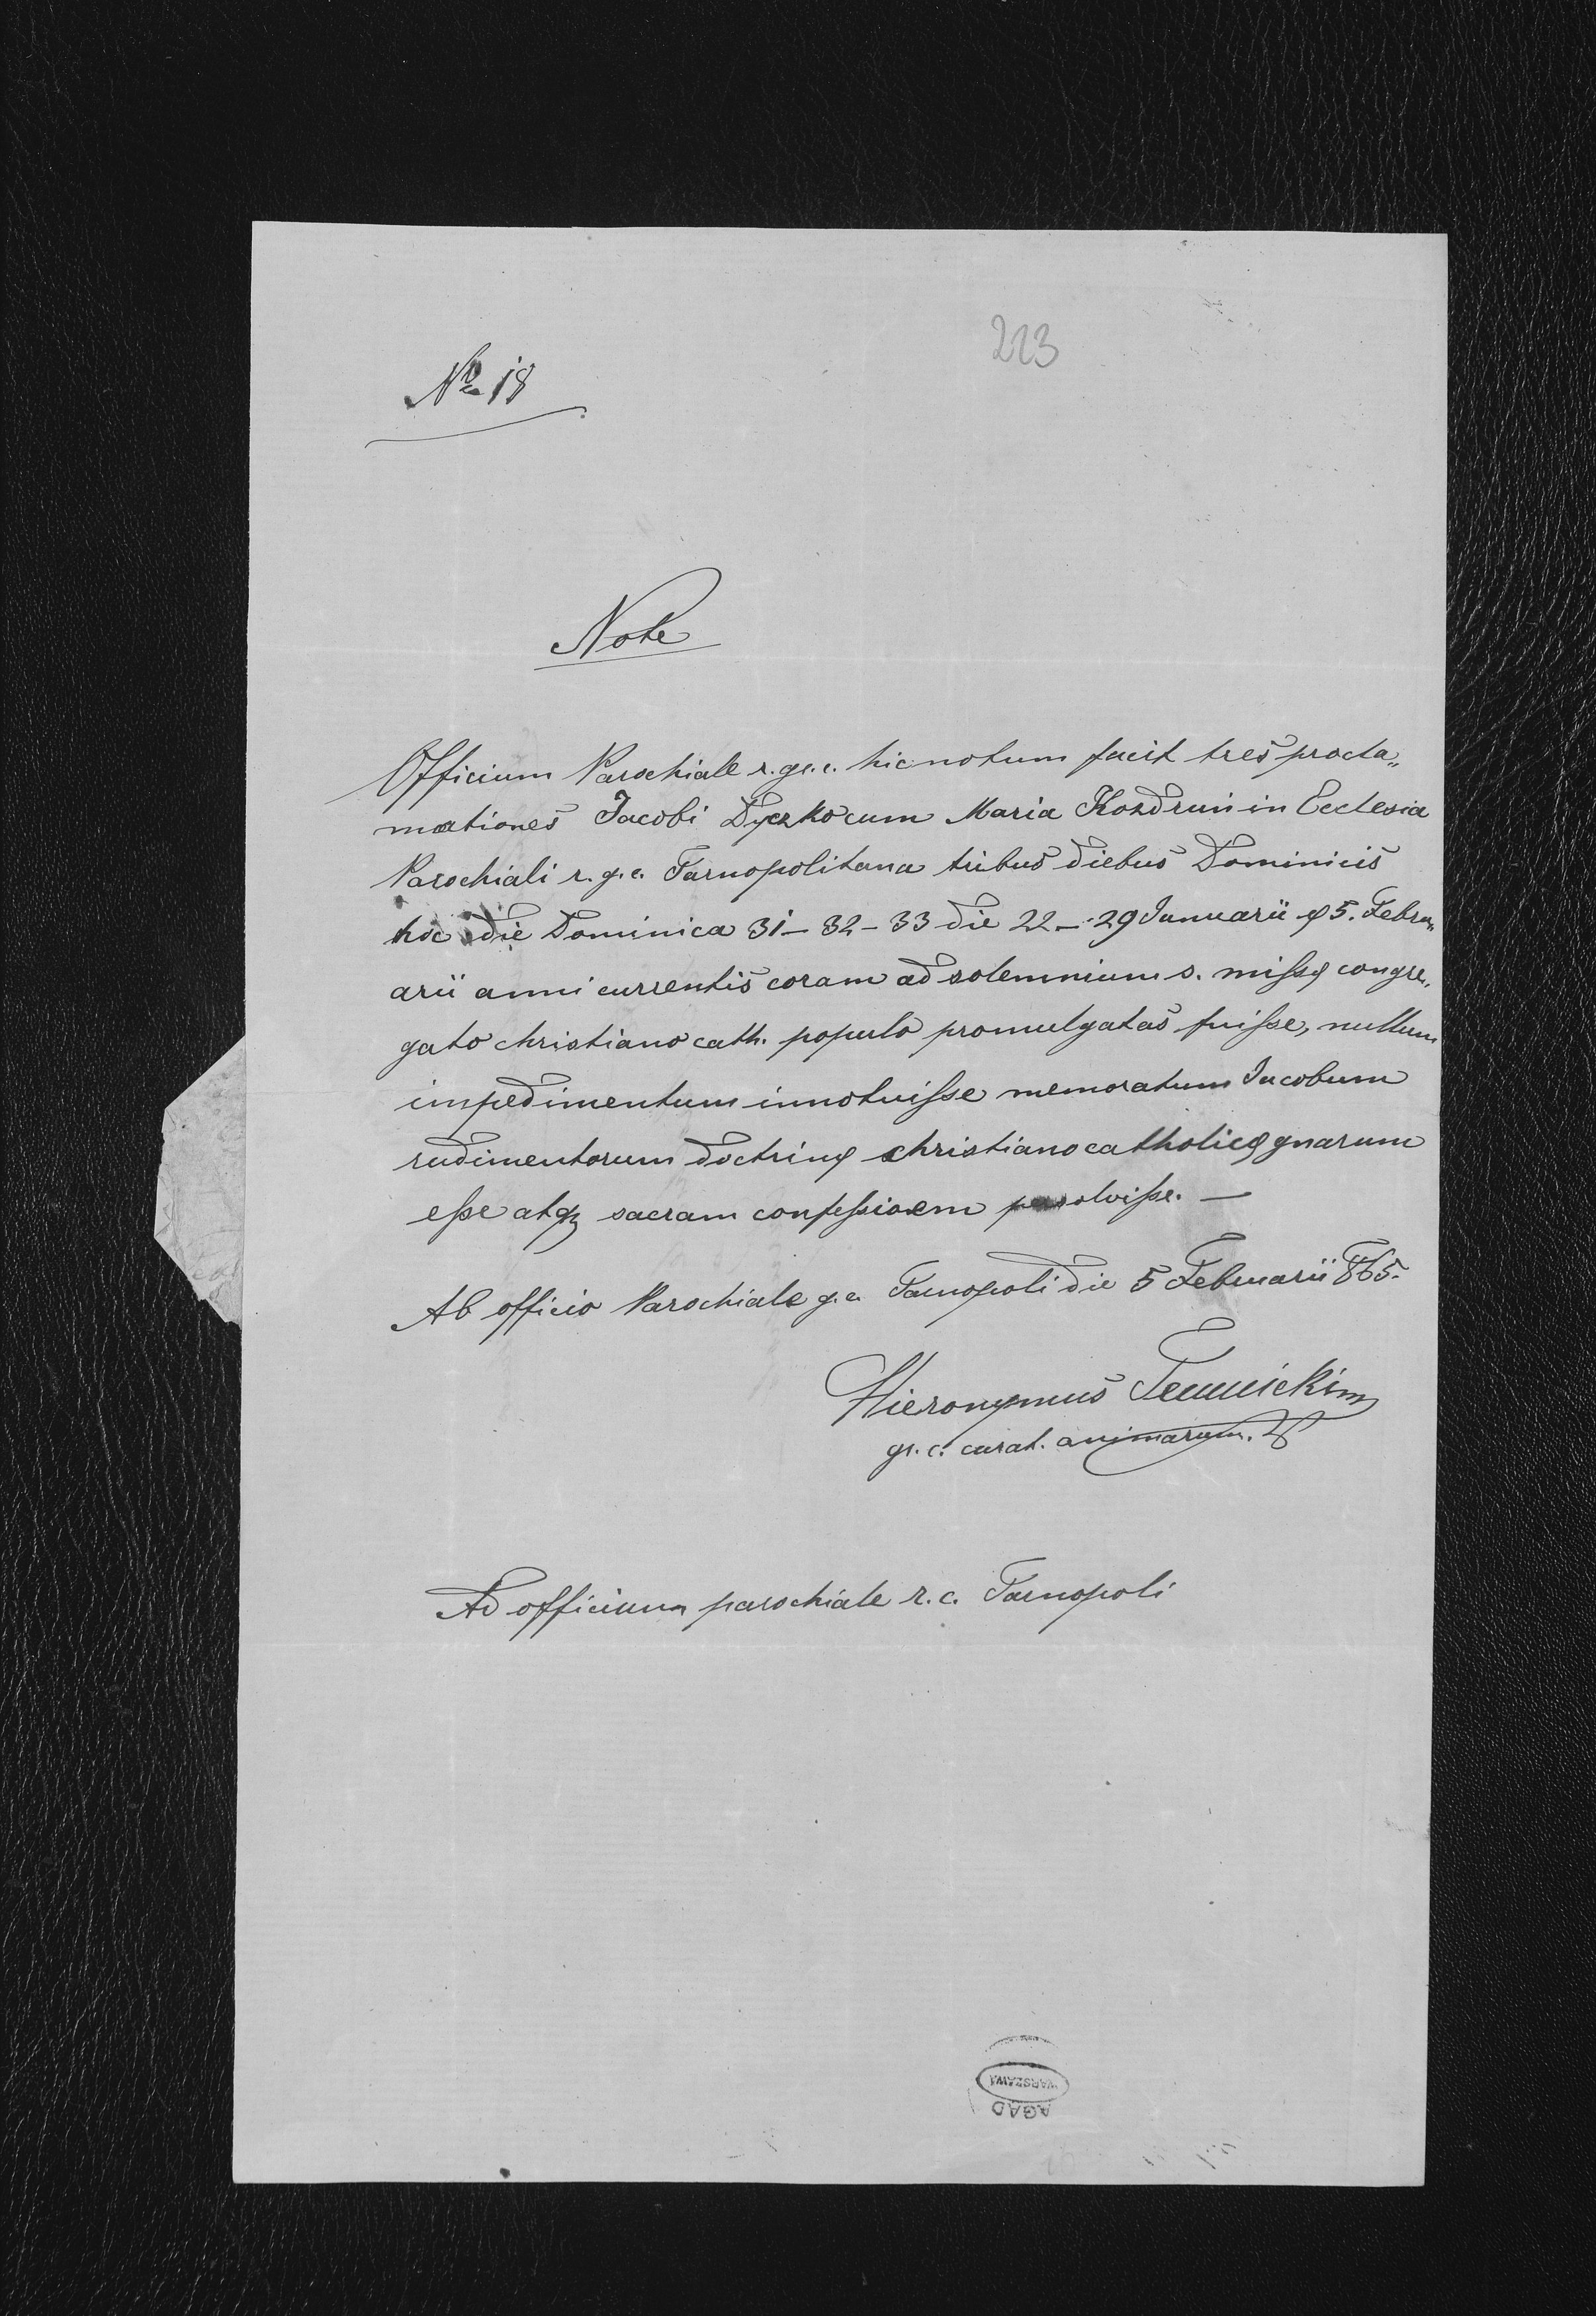 223
No 18
Note
Officium Parochiale r. gr. c. hic notum facit tres procla„
mationes Jacobi Dyczko cum Maria Kozdruń in Ecclesia
Parochiali r. g. c. Tarnopolitana tribus diebus Dominicis
hoc die Dominica 31 – 32 – 33 die 22 – 29 Januarii & 5. Febru„
arii anni currentis coram ad solemnium s. missę congre„
gato christiano cath. populo promulgatas fuisse, nullum
impedimentum innotuisse memoratum Jacobum
rudimentorum doctrinę christiano catholicę gnarum
esse atq sacram confessioem persolvisse. —
Ab officio Parochiale g. c. Tarnopoli die 5 Februarii 865.
Hieronymus
gr. c. curat. animarum.
Ad officium parochiale r. c. Tarnopoli
WARSZAWA
AGAD